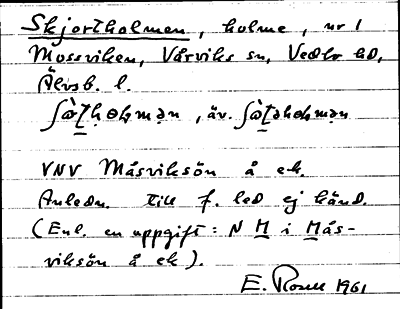 Skjortholmen, holme, nr 1
Mossviken, Vårviks sn, Vedbo hd,
Älvsb. l.
, äv.
VNV Måsviksön å ek.
Anledn. till f. led ej känd.
(Enl. en uppgift: N M i Mås-
viksön å ek).
E. 1961